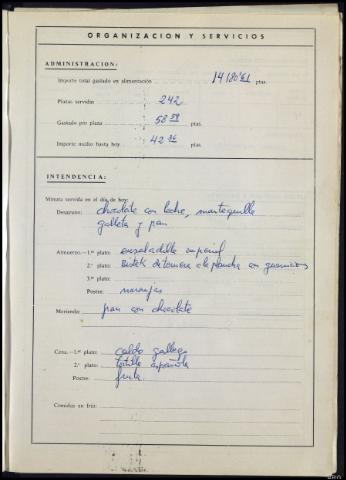 ORGANIZACION Y SERVICIOS
ADMINISTRACION:
Importe total gastado en alimentación 14180'61 ptas.
Plazas servidas 242
Gastado por plaza 58 59 ptas.
Importe medio hasta hoy 42 36 ptas.
INTENDENCIA:
Minuta servida en el día de hoy:
Desayuno: chocolate con leche, mantequilla
galleta y pan
Almuerzo.—1.er plato: ensaladilla imperial
2.º plato: bistek de ternera a la plancha con guarnicion
3.er plato:
Postre: naranjas
Merienda: pan con chocolate
Cena.—1.er plato: caldo gallego
2.º plato: tortilla española
Postre: fruta
Comidas en frío: